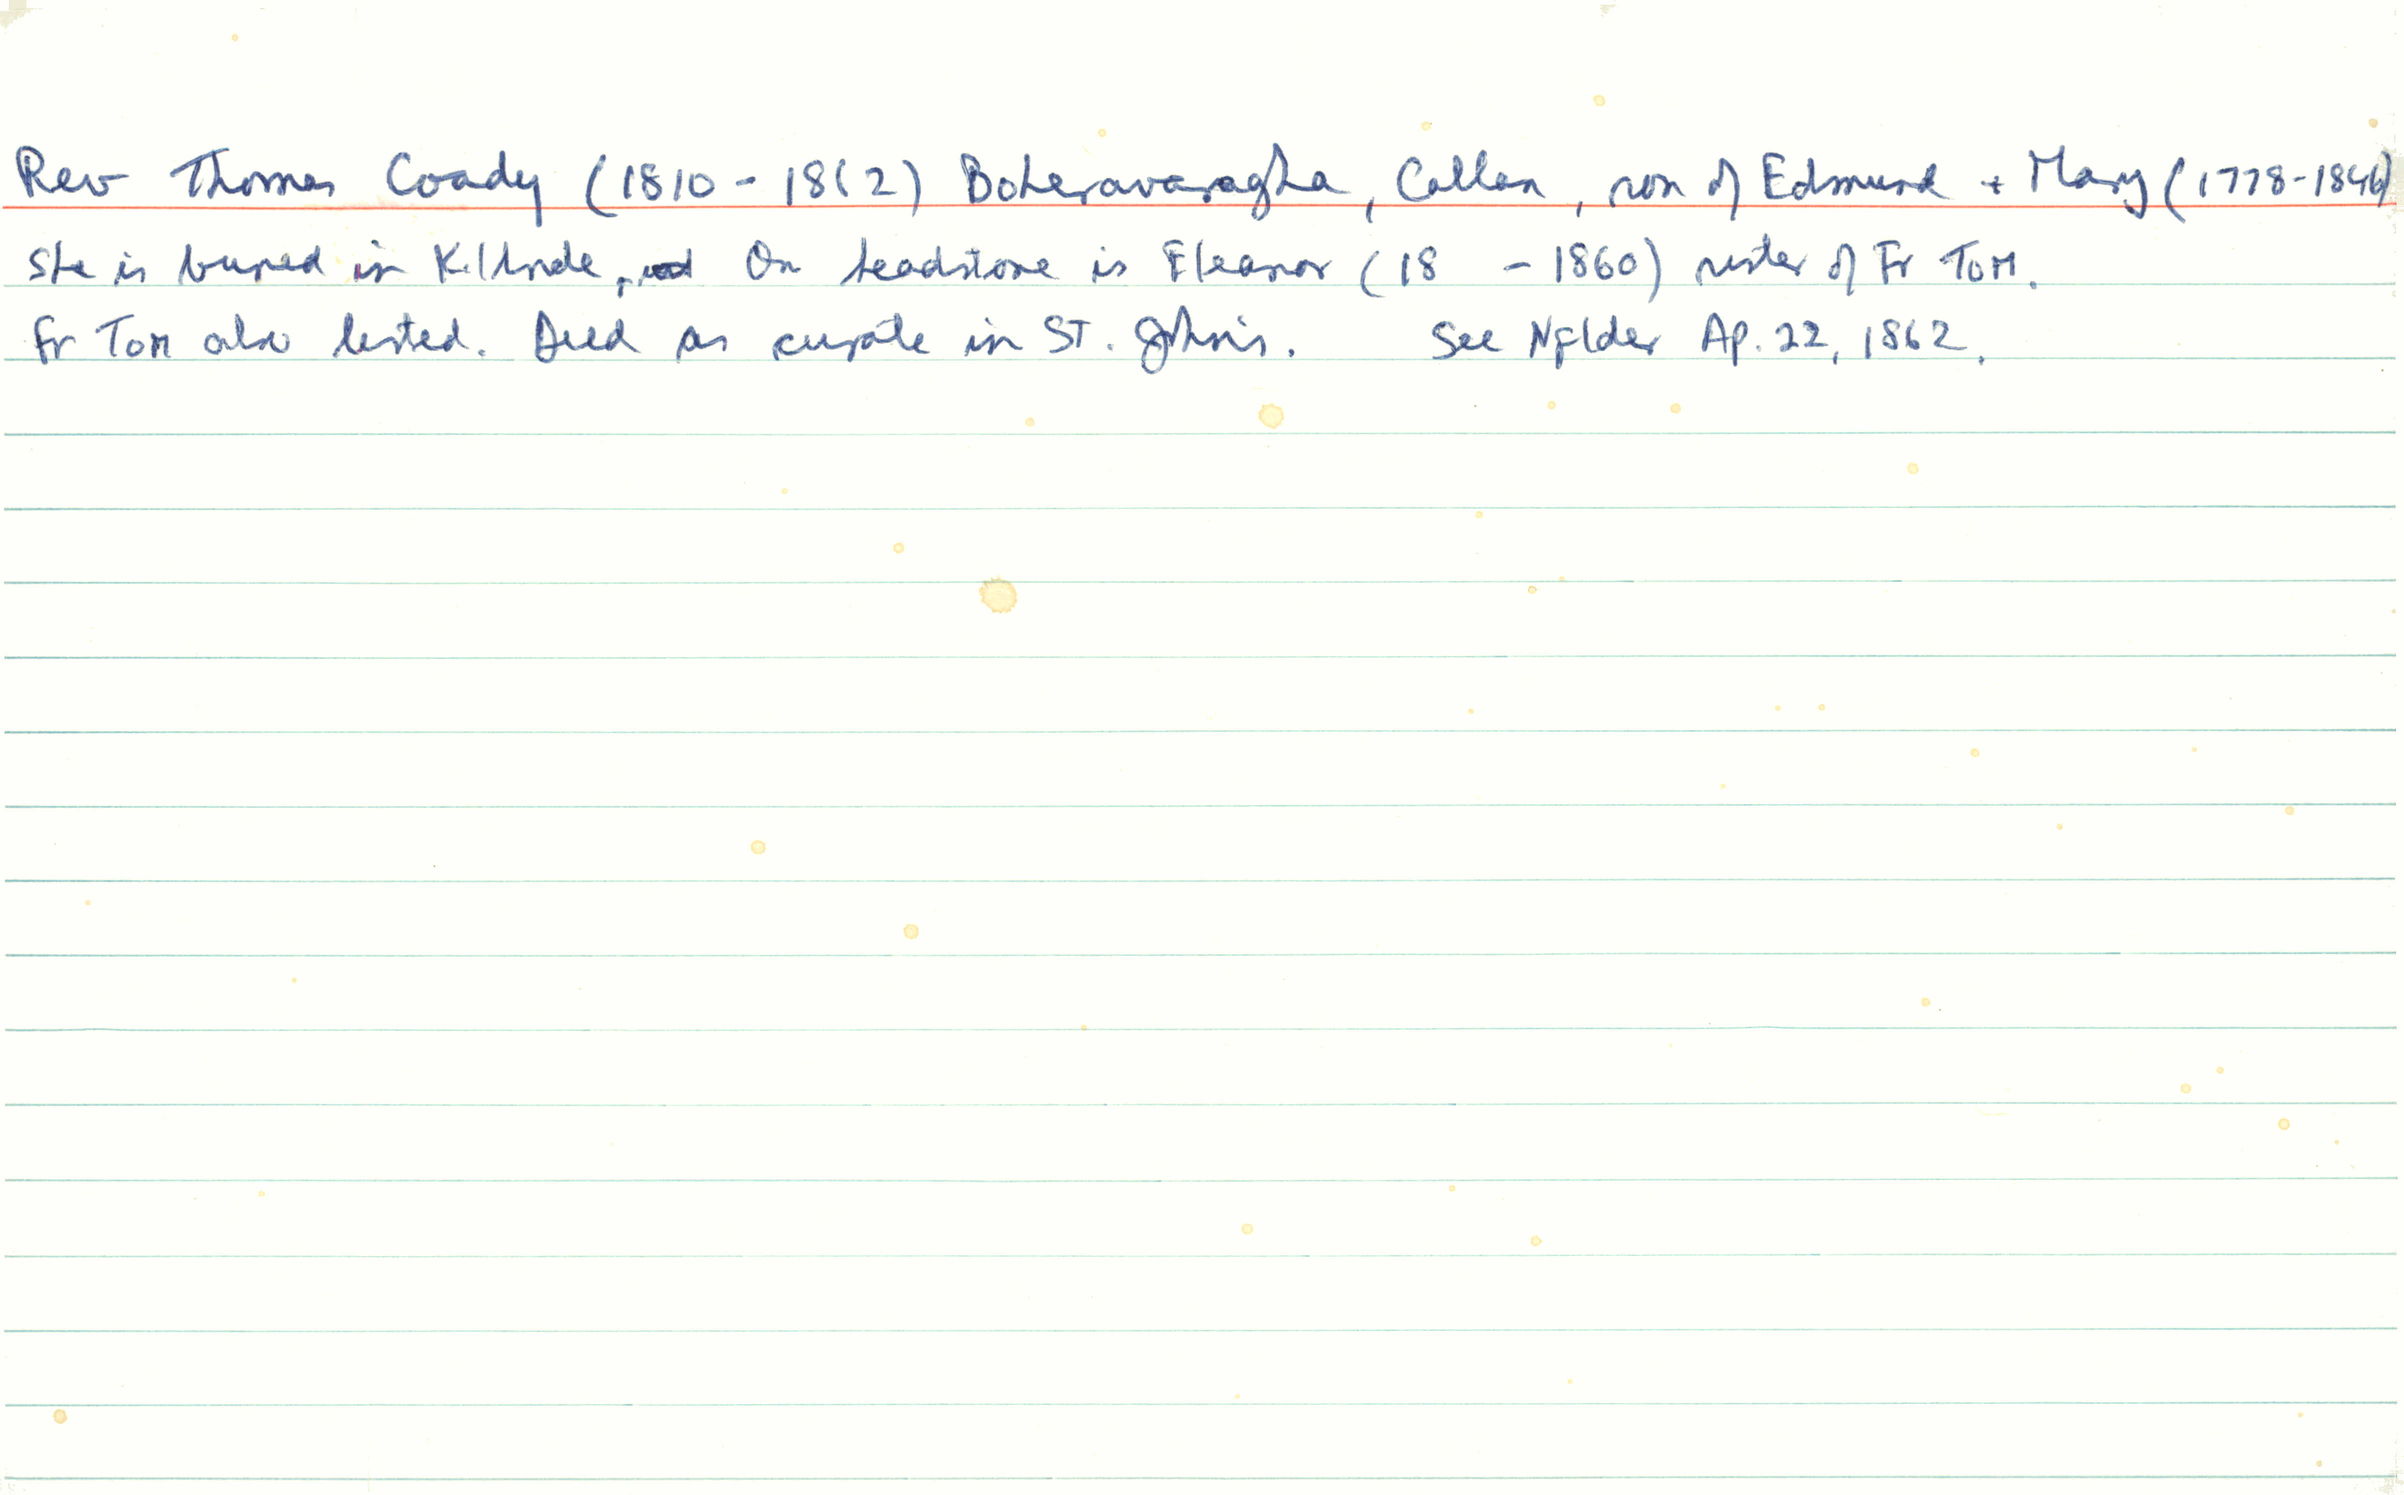 Rev Thomas Coady (1810 - 1862) Boheravaragha, Callan, son of Edmund + Mary (1778-1846)
She is buried in Kilbride, On headstone is Eleanor (18 - 1860) sister of Fr Tom.
Fr Tom also listed. Died as curate in St. John's. See Nflder Ap. 22, 1862.